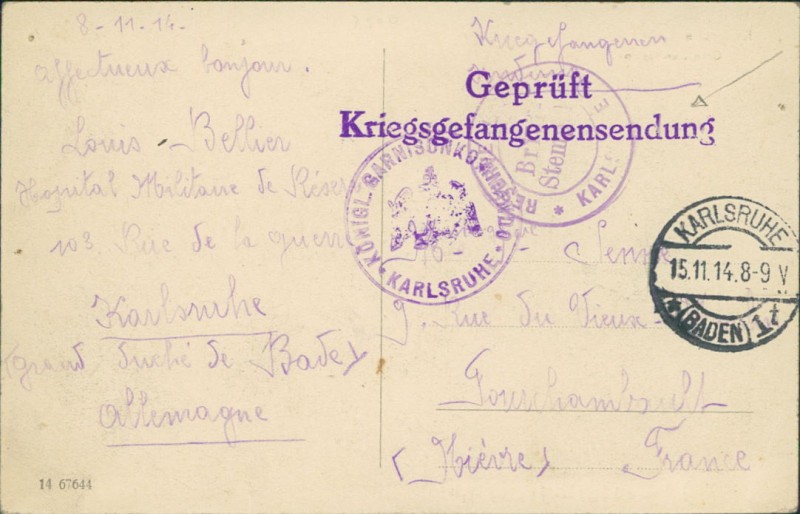 8-11-14.
Affectueux bonjour.
Louis Bellier
Hopital Militaire de Réser
103 Rue de la guerre
Karlsruhe
(grand duché de Bade)
Allemagne
14 67644
Kriegsgefangenen
Geprüft
Kriegsgefangenensendung
KÖNIGL. GARNISONKO
KARLSRUHE
Stem
KARLS
KARLSRUHE
15.11.14.8-9 V
* (BADEN) 1t
9. Rue du Vieux
Fourchambault
(Nièvre) France